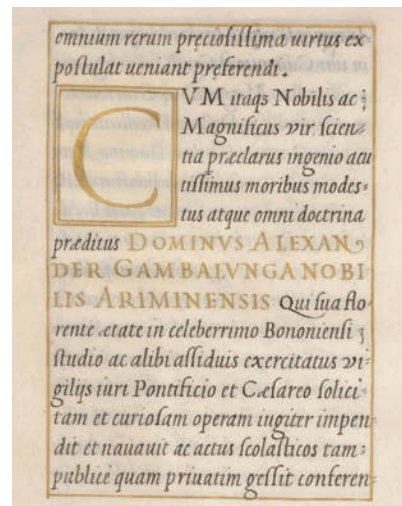 omnium rerum pręciosissima uirtus ex⸗
postulat ueniant pręferendi.
CVM itaqꝫ Nobilis ac
Magnificus vir scien⸗
tia præclarus ingenio acu
tissimus moribus modes⸗
tus atque omni doctrina
præditus DOMINVS ALEXAN
DER GAMBALVNGA NOBI
LIS ARIMINENSIS Qui sua flo⸗
rente ætate in celeberrimo Bononiensi
studio ac alibi assiduis exercitatus vi⸗
gilijs iuri Pontificio et Cæsareo solici⸗
tam et curiosam operam iugiter impen
dit et nauauit ac actus scolasticos tam
publicè quam priuatim gessit conferen⸗